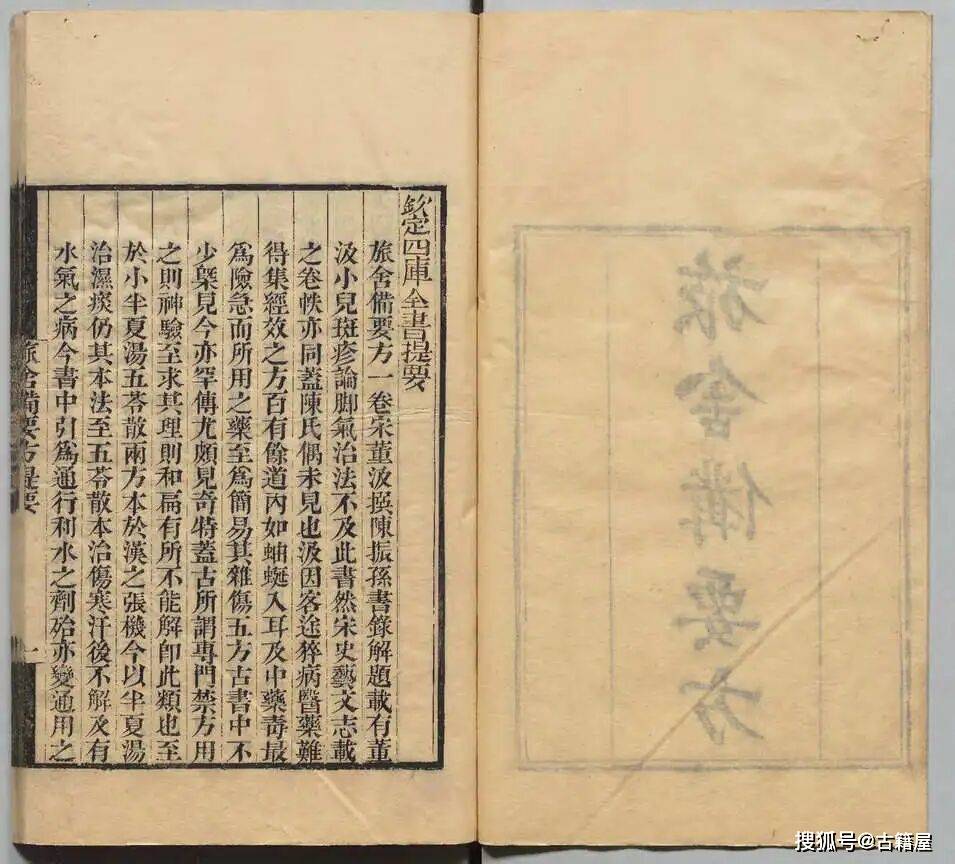 旅舍備要方
欽定四庫全書提要
旅舍備要方一卷宋董汲撰陳振孫書錄解題載有董
汲小兒斑疹論脚氣治法不及此書然宋史藝文志載
之卷帙亦同蓋陳氏偶未見也汲因客途猝病醫藥難
得集經效之方百有餘道內如蚰蜒入耳及中藥毒最
爲險急而所用之藥至爲簡易其雜傷五方古書中不
少槩見今亦罕傳尤頗見奇特蓋古所謂專門禁方用
之則神驗至求其理則和扁有所不能解卽此類也至
於小半夏湯五苓散兩方本於漢之張機今以半夏湯
治濕痰仍其本法至五苓散本治傷寒汗後不解及有
水氣之病今書中引爲通行利水之劑殆亦變通用之
旅舍備要方提要
一
搜狐号@古籍屋